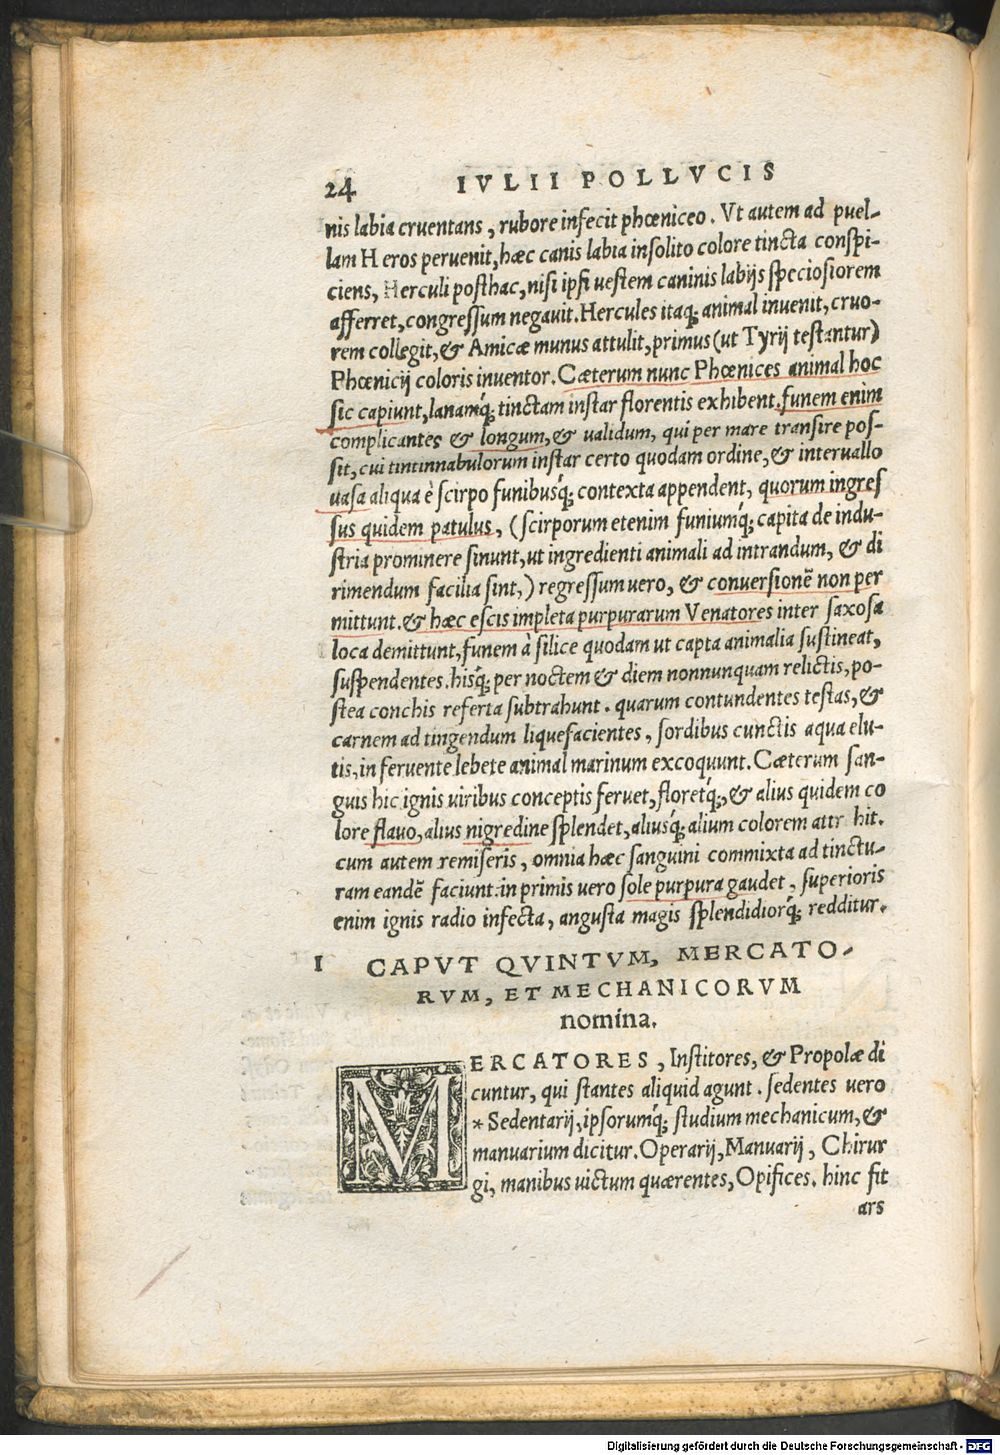 24 IVLII POLLVCIS
nis labia cruentans, rubore infecit phœniceo. Vt autem ad puel-
lam Heros peruenit, hæc canis labia insolito colore tincta conspi-
ciens, Herculi posthac, nisi ipsi uestem caninis labijs speciosiorem
afferret, congressum negauit. Hercules itaq; animal inuenit, cruo-
rem collegit, & Amicæ munus attulit, primus (ut Tyrij testantur)
Phœnicij coloris inuentor. Cæterum nunc Phœnices animal hoc
sic capiunt, lanamq́; tinctam instar florentis exhibent. funem enim
complicantes & longum, & ualidum, qui per mare transire pos-
sit, cui tintinnabulorum instar certo quodam ordine, & interuallo
uasa aliqua è scirpo funibusq́; contexta appendent, quorum ingres
sus quidem patulus, (scirporum etenim funiumq́; capita de indu-
stria prominere sinunt, ut ingredienti animali ad intrandum, & di
rimendum facilia sint,) regressum uero, & conuersionẽ non per
mittunt. & hæc escis impleta purpurarum Venatores inter saxosa
loca demittunt, funem à silice quodam ut capta animalia sustineat,
suspendentes. hisq́; per noctem & diem nonnunquam relictis, po-
stea conchis referta subtrahunt. quarum contundentes testas, &
carnem ad tingendum liquefacientes, sordibus cunctis aqua elu-
tis, in feruente lebete animal marinum excoquunt. Cæterum san-
guis hic ignis uiribus conceptis feruet, floretq́;, & alius quidem co
lore flauo, alius nigredine splendet, aliusq́; alium colorem attr hit.
cum autem remiseris, omnia hæc sanguini commixta ad tinctu-
ram eandẽ faciunt. in primis uero sole purpura gaudet, superioris
enim ignis radio infecta, angusta magis splendidiorq́; redditur.
I CAPVT QVINTVM, MERCATO-
RVM, ET MECHANICORVM
nomina.
MERCATORES, Institores, & Propolæ di
cuntur, qui stantes aliquid agunt. sedentes uero
*Sedentarij, ipsorumq́; studium mechanicum, &
manuarium dicitur. Operarij, Manuarij, Chirur
gi, manibus uictum quærentes, Opifices. hinc fit
ars
Digitalisierung gefördert durch die Deutsche Forschungsgemeinschaft - DFG